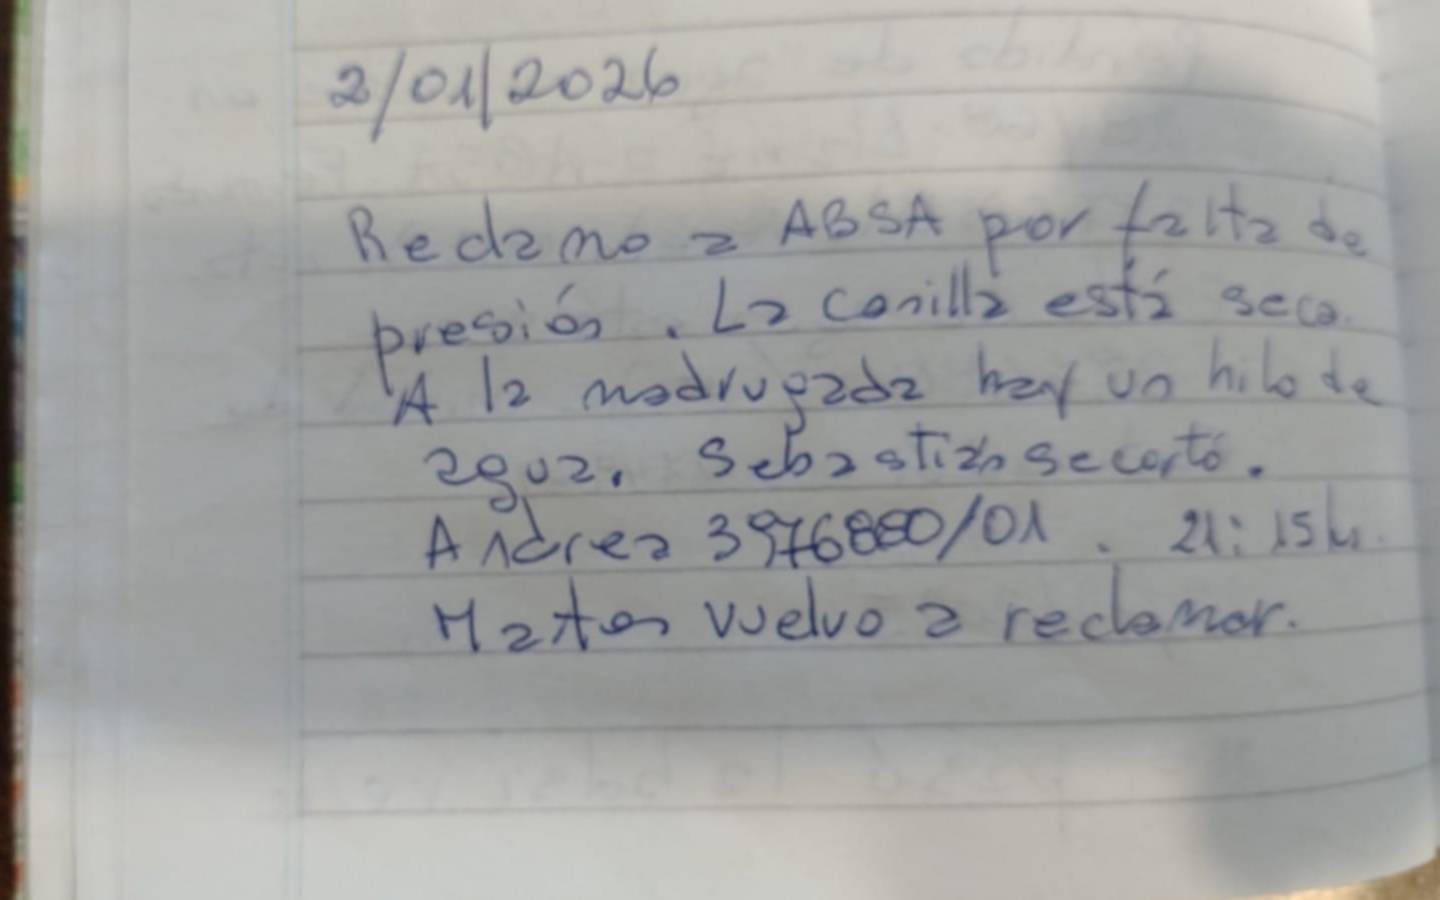 2/01/2026
Reclamo a ABSA por falta de
presión. La canilla está seca.
A la madrugada hay un hilo de
agua. Sebastián se cortó.
Andrea 3976880/01. 21:15 h.
Matías vuelvo a reclamar.